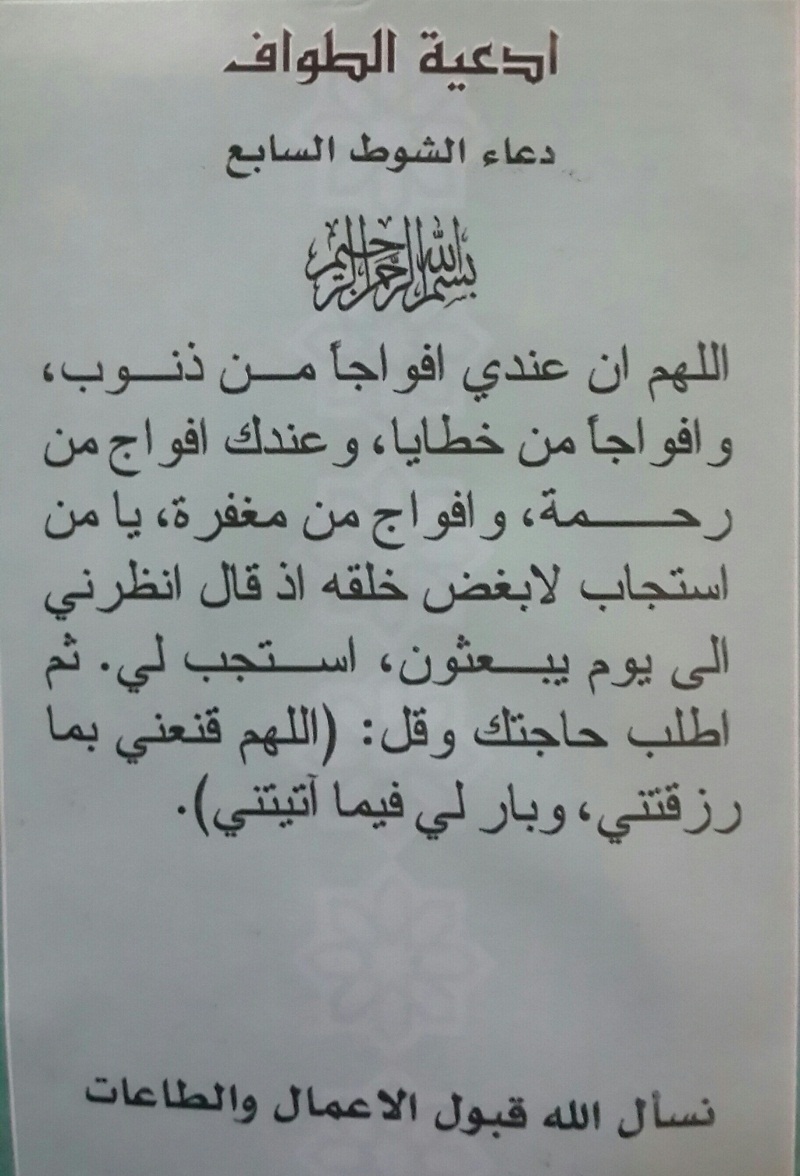 ادعية الطواف
دعاء الشوط السابع
بسم الله الرحمن الرحيم
اللهم ان عندي افواجاً من ذنوب،
وافواجاً من خطايا، وعندك افواج من
رحمة، وافواج من مغفرة، يا من
استجاب لابغض خلقه اذ قال انظرني
الى يوم يبعثون، استجب لي. ثم
اطلب حاجتك وقل: (اللهم قنعني بما
رزقتني، وبار لي فيما آتيتني).
نسأل الله قبول الاعمال والطاعات